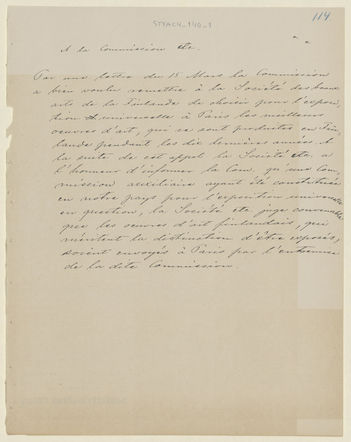 STyACH_140_1
114.
A la Commission etc.
Par une lettre du 13 Mars la Commission
a bien voulu remettre à la Société des beaux
arts de la Finlande de choisir pour l'expose,
tion universelle à Paris les meilleurs
oeuvres d'art, qui se sont produites en Fin-
lande pendant les dix dernières années. A
la suite de cet appel la Société etc. a
l'honneur d'informer la Com. qu'une Com,
mission auxiliaire ayant été constituée
en notre pays pour l'exposition universelle
en question, la Société etc juge convenable
que les oeuvres d'art finlandais, qui
méritent la distinction d'être exposés,
soient envoyés à Paris par l'entremise
de la dite Commission.